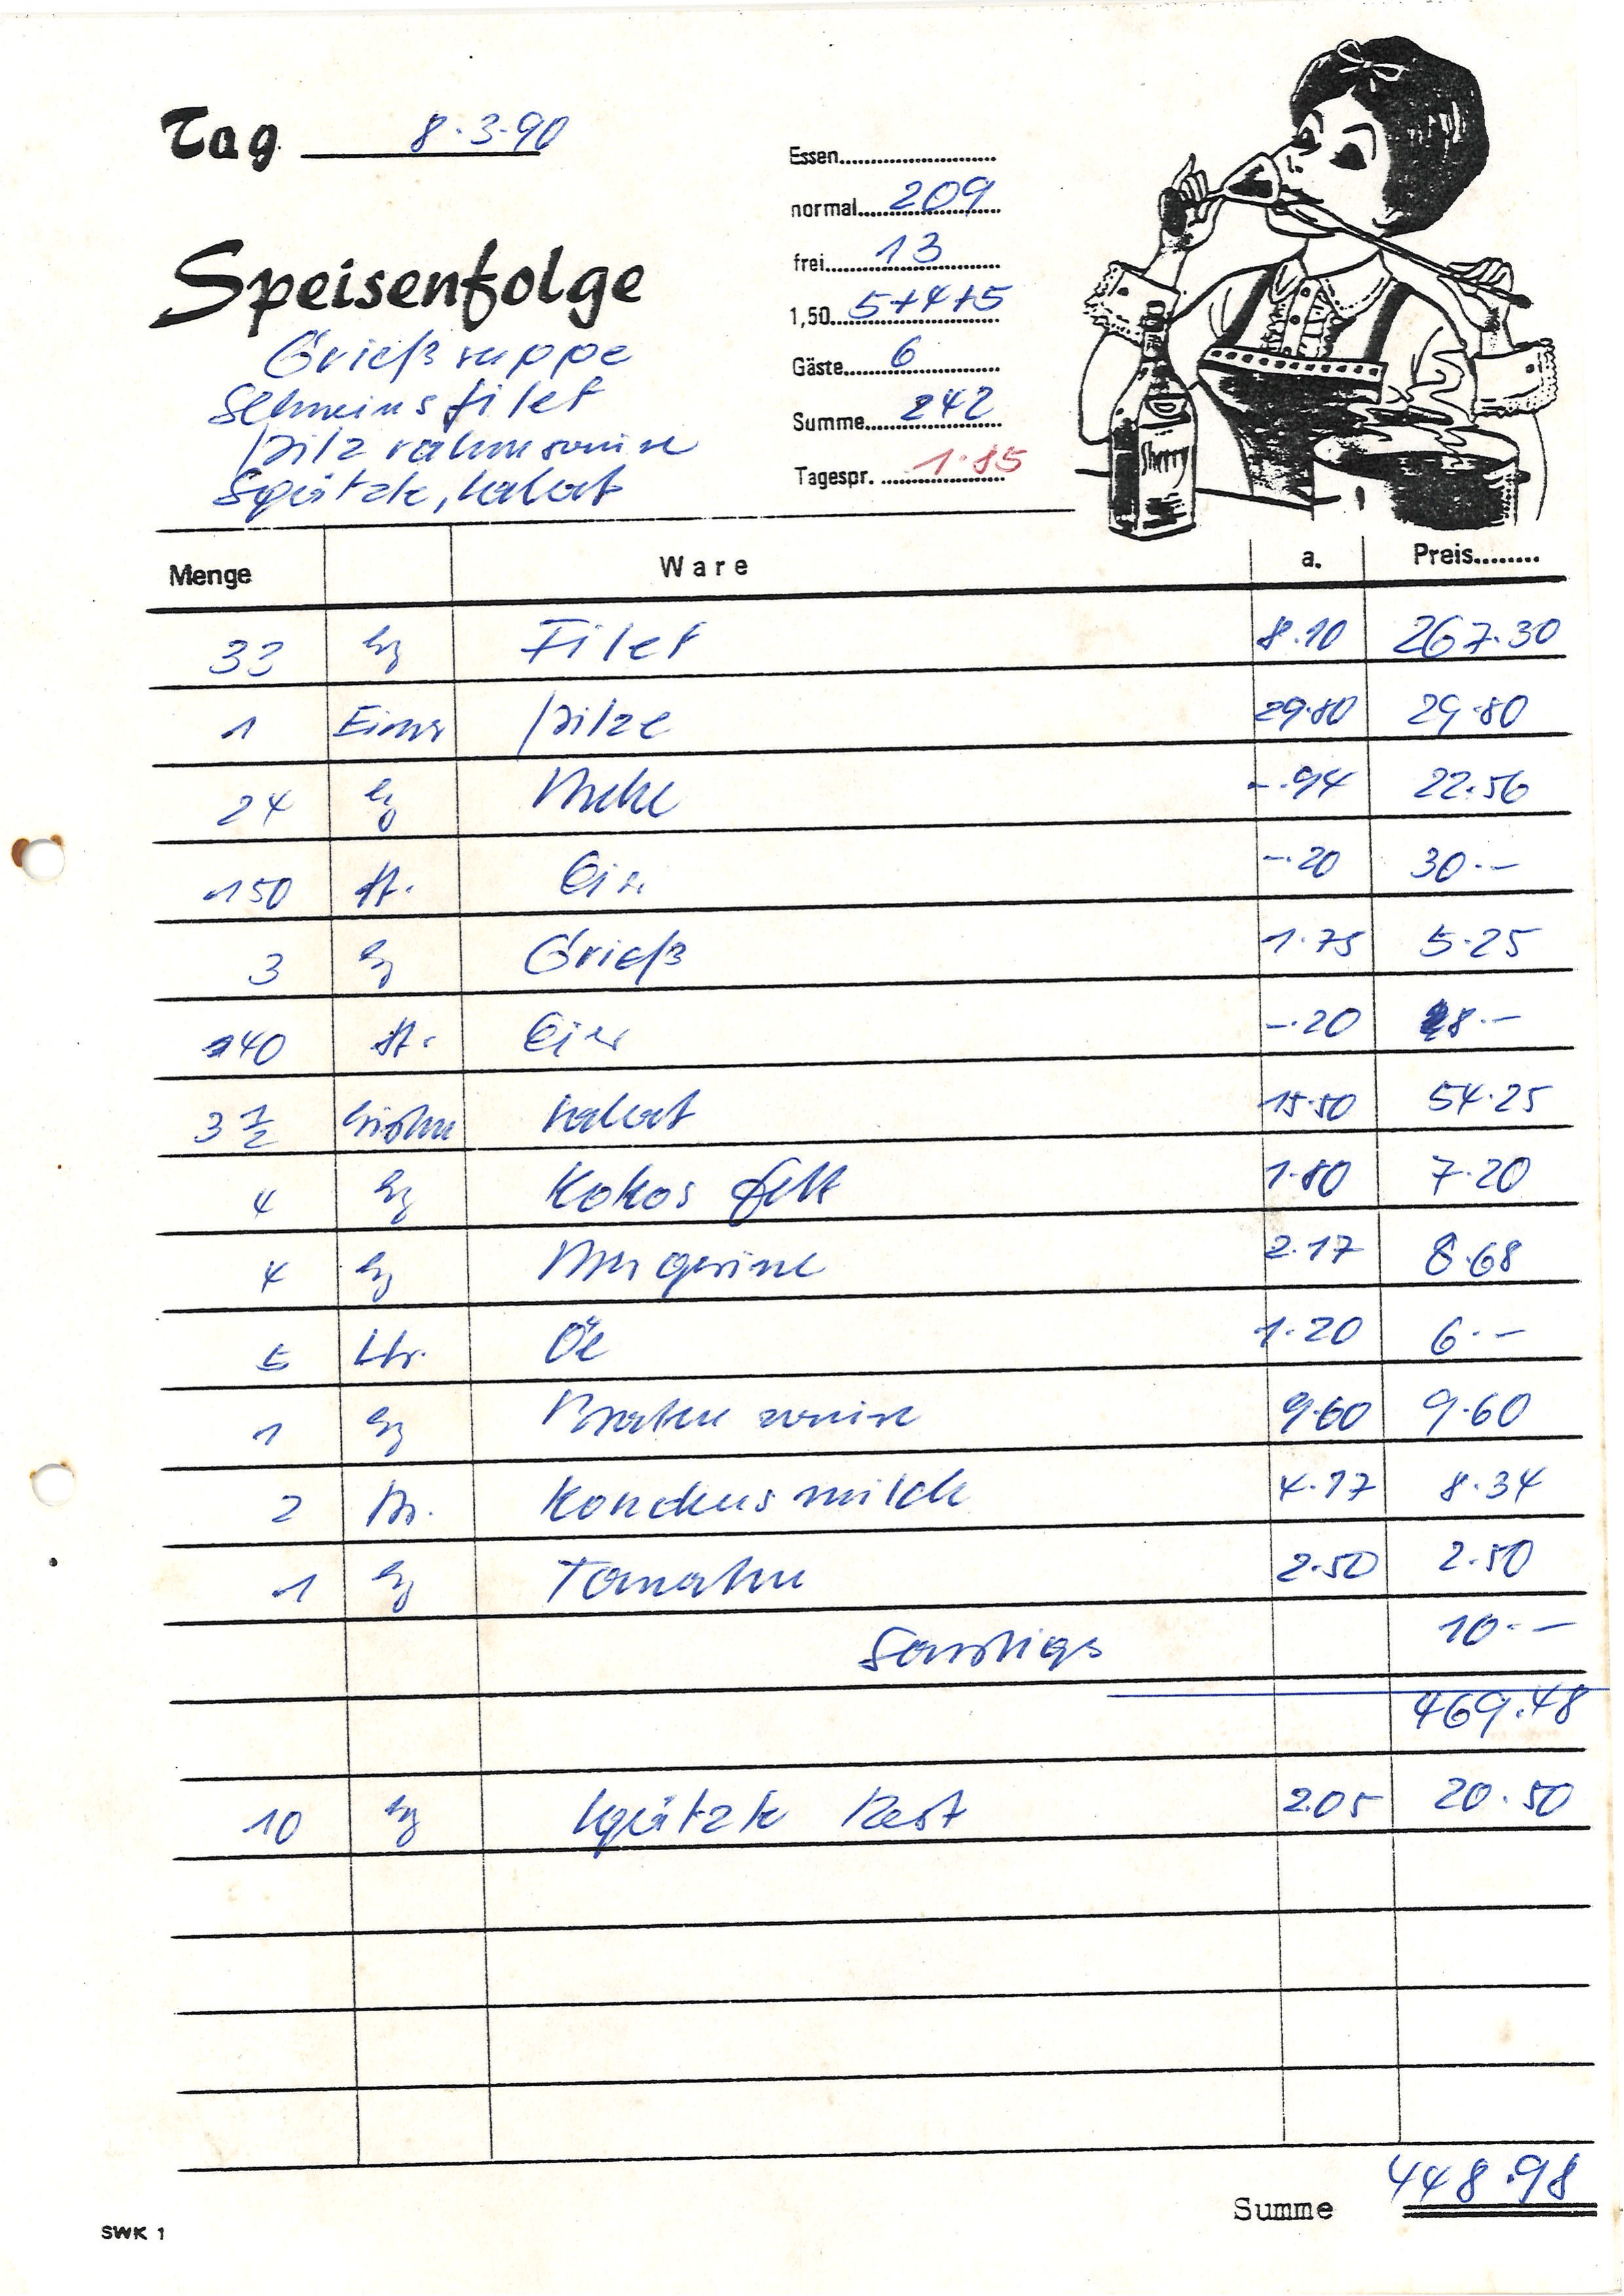 Tag 8.3.90
Essen
normal 209
frei 13
1,50 5+4+5
Gäste 6
Summe 242
Tagespr. 1.85
Speisenfolge
Grießsuppe
Schweinsfilet
Pilzrahmsauce
Spätzle, Salat
Sherry
Menge Ware a. Preis
33 kg Filet 8.10 267.30
1 Eimer Pilze 29.80 29.80
24 kg Mehl -.94 22.56
150 St. Eier -.20 30.-
3 kg Grieß 1.75 5.25
40 St. Eier -.20 8.-
3 1/2 Salat 15.50 54.25
4 kg Kokosfett 1.80 7.20
4 kg Margarine 2.17 8.68
5 Ltr. Öl 1.20 6.-
1 kg Bratensauce 9.60 9.60
2 Kondensmilch 4.17 8.34
1 kg Tomaten 2.50 2.50
Sonstiges 10.-
469.48
10 kg Spätzle Rest 2.05 20.50
Summe 448.98
SWK 1